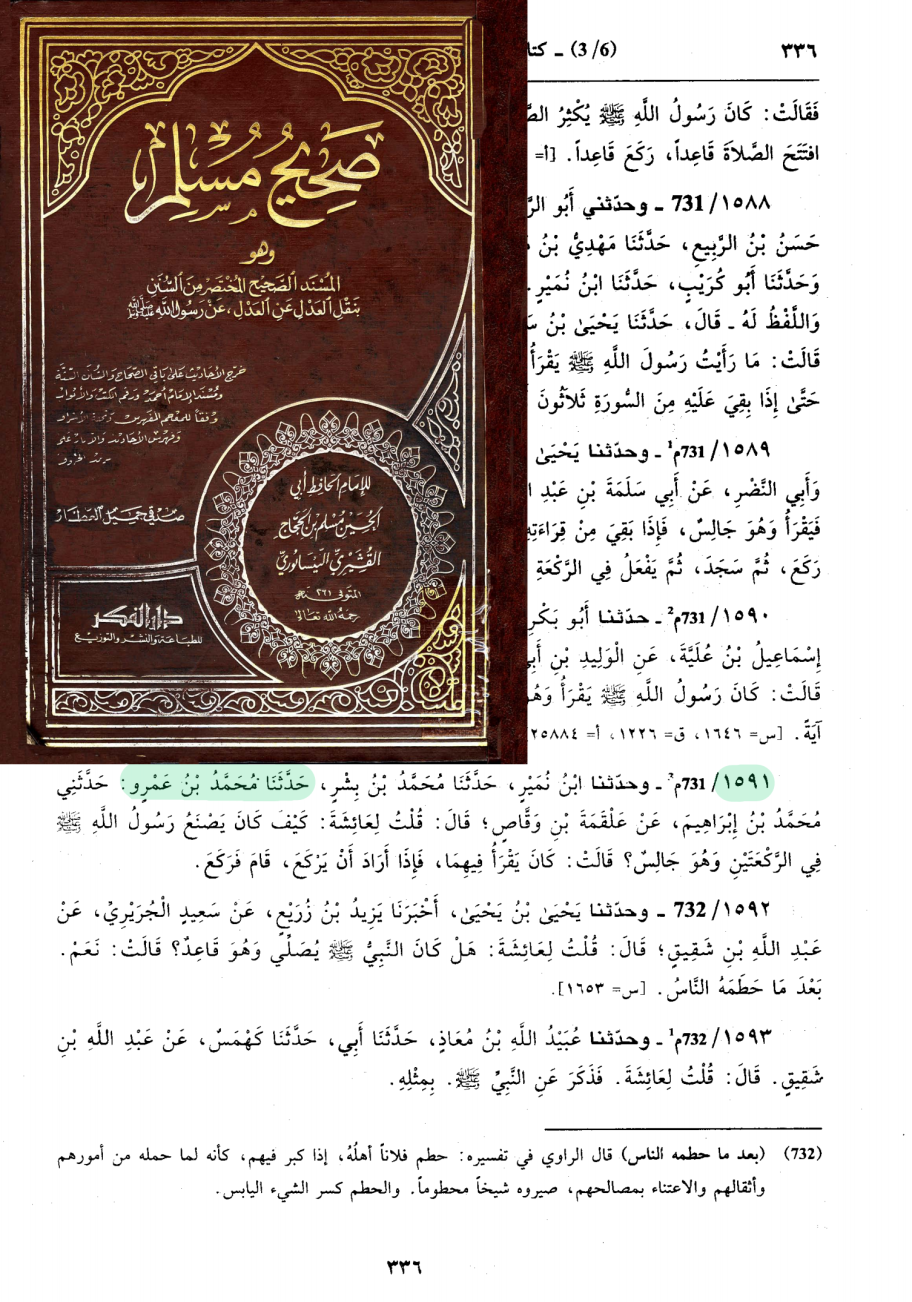 ٣٣٦
(3/6) ـ
فَقَالَتْ: كَانَ رَسُولُ اللَّهِ ﷺ يُكْثِرُ
افتَتَحَ الصَّلاَةَ قَاعِداً، رَكَعَ قَاعِداً. [أ=
١٥٨٨/ 731 ـ وحدّثني أَبُو
حَسَنُ بْنُ الرَّبِيعِ، حَدَّثَنَا مَهْدِيُّ بْنُ
وَحَدَّثَنَا أَبُو كُرَيْبٍ، حَدَّثَنَا ابْنُ نُمَيْرٍ.
وَاللَّفْظُ لَهُ ـ قَالَ، حَدَّثَنَا يَحْيَىٰ بْنُ
قَالَتْ: مَا رَأَيْتُ رَسُولَ اللَّهِ ﷺ يَقْرَأُ
حَتَّىٰ إِذَا بَقِيَ عَلَيْهِ مِنَ السُّورَةِ ثَلاَثُونَ
١٥٨٩/ 731م¹ ـ وحدّثنا يَحْيَىٰ
وَأَبِي النَّضْرِ، عَنْ أَبِي سَلَمَةَ بْنِ عَبْدِ
فَيَقْرَأُ وَهُوَ جَالِسٌ، فَإِذَا بَقِيَ مِنْ قِرَاءَتِهِ
رَكَعَ، ثُمَّ سَجَدَ، ثُمَّ يَفْعَلُ فِي الرَّكْعَةِ
١٥٩٠/ 731م² ـ حدّثنا أَبُو بَكْرِ
إِسْمَاعِيلُ بْنُ عُلَيَّةَ، عَنِ الْوَلِيدِ بْنِ أَبِي
قَالَتْ: كَانَ رَسُولُ اللَّهِ ﷺ يَقْرَأُ وَهُوَ
آيَةً. [س= ١٦٤٦، ق= ١٢٢٦، أ= ٢٥٨٨٤
صَحِيحُ مُسْلِم
وهو
المُسْنَد الصَّحِيح المُخْتَصَر مِنَ السُّنَن
بنَقْلِ العَدْلِ عَنِ العَدْلِ، عَنْ رَسُولِ اللَّه ﷺ
خرج الأحاديث على باقي الصحاح والسنن الستة
ومسند الإمام أحمد ورقم الكتب والأبواب
صدقي جميل العطار
للإمام الحافظ أبي
الحُسَيْن مُسْلِم بن الحَجَّاج
القُشَيْريِّ النَّيسَابُوريِّ
المتوفى ٢٦١ هـ
رحمه الله تعالى
دار الفكر
للطباعة والنشر والتوزيع
١٥٩١/ 731م³ ـ وحدّثنا ابْنُ نُمَيْرٍ، حَدَّثَنَا مُحَمَّدُ بْنُ بِشْرٍ، حَدَّثَنَا مُحَمَّدُ بْنُ عَمْرٍو: حَدَّثَنِي
مُحَمَّدُ بْنُ إِبْرَاهِيمَ، عَنْ عَلْقَمَةَ بْنِ وَقَّاصٍ؛ قَالَ: قُلْتُ لِعَائِشَةَ: كَيْفَ كَانَ يَصْنَعُ رَسُولُ اللَّهِ ﷺ
فِي الرَّكْعَتَيْنِ وَهُوَ جَالِسٌ؟ قَالَتْ: كَانَ يَقْرَأُ فِيهِمَا، فَإِذَا أَرَادَ أَنْ يَرْكَعَ، قَامَ فَرَكَعَ.
١٥٩٢/ 732 ـ وحدّثنا يَحْيَىٰ بْنُ يَحْيَىٰ، أَخْبَرَنَا يَزِيدُ بْنُ زُرَيْعٍ، عَنْ سَعِيدٍ الْجُرَيْرِيِّ، عَنْ
عَبْدِ اللَّهِ بْنِ شَقِيقٍ؛ قَالَ: قُلْتُ لِعَائِشَةَ: هَلْ كَانَ النَّبِيُّ ﷺ يُصَلِّي وَهُوَ قَاعِدٌ؟ قَالَتْ: نَعَمْ.
بَعْدَ مَا حَطَمَهُ النَّاسُ. [س= ١٦٥٣].
١٥٩٣/ 732م¹ ـ وحدّثنا عُبَيْدُ اللَّهِ بْنُ مُعَاذٍ، حَدَّثَنَا أَبِي، حَدَّثَنَا كَهْمَسٌ، عَنْ عَبْدِ اللَّهِ بْنِ
شَقِيقٍ. قَالَ: قُلْتُ لِعَائِشَةَ. فَذَكَرَ عَنِ النَّبِيِّ ﷺ. بِمِثْلِهِ.
(732) (بعد ما حطمه الناس) قال الراوي في تفسيره: حطم فلاناً أهلُهُ، إذا كبر فيهم، كأنه لما حمله من أمورهم
وأثقالهم والاعتناء بمصالحهم، صيروه شيخاً محطوماً. والحطم كسر الشيء اليابس.
٣٣٦